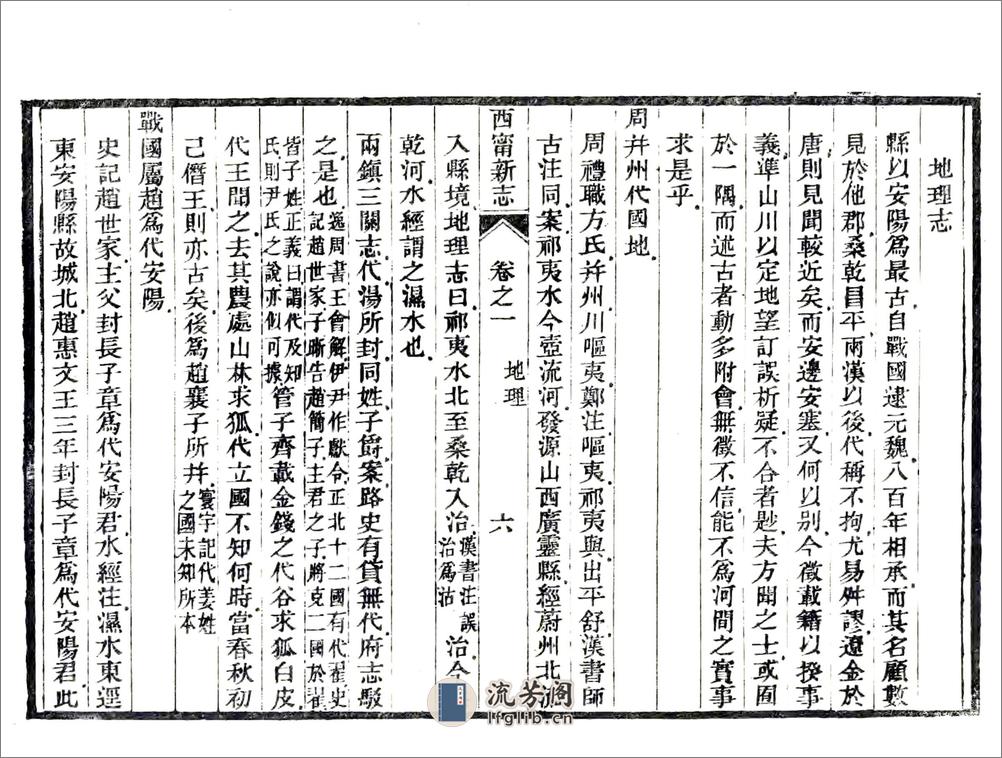 地理志
縣以安陽爲最古自戰國逮元魏八百年相承而其名顧數
見於他郡桑乾昌平兩漢以後代稱不拘尤易舛謬遼金於
唐則見聞較近矣而安邊安塞又何以別今徵載籍以揆事
義準山川以定地望訂誤析疑不合者尠夫方聞之士或囿
於一隅而述古者動多附會無徵不信能不爲河間之實事
求是乎
周并州代國地
周禮職方氏并州川嘔夷鄭注嘔夷祁夷與出平舒漢書師
古注同案祁夷水今壺流河發源山西廣靈縣經蔚州北流
西甯新志 卷之一 地理 六
入縣境地理志曰祁夷水北至桑乾入治漢書注誤治爲沽治今
乾河水經謂之㶟水也
兩鎮三關志代湯所封同姓子爵案路史有貸無代府志駁
之是也逸周書王會解伊尹作獻令正北十二國有代翟史記趙世家子晰告趙簡子主君之子將克二國於翟
皆子姓正義曰謂代及知氏則尹氏之說亦似可據管子齊載金錢之代谷求狐白皮
代王聞之去其農處山林求狐代立國不知何時當春秋初
己僭王則亦古矣後爲趙襄子所并寰宇記代姜姓之國未知所本
戰國屬趙爲代安陽
史記趙世家主父封長子章爲代安陽君水經注㶟水東逕
東安陽縣故城北趙惠文王三年封長子章爲代安陽君此
流芳阁
lfglib.cn